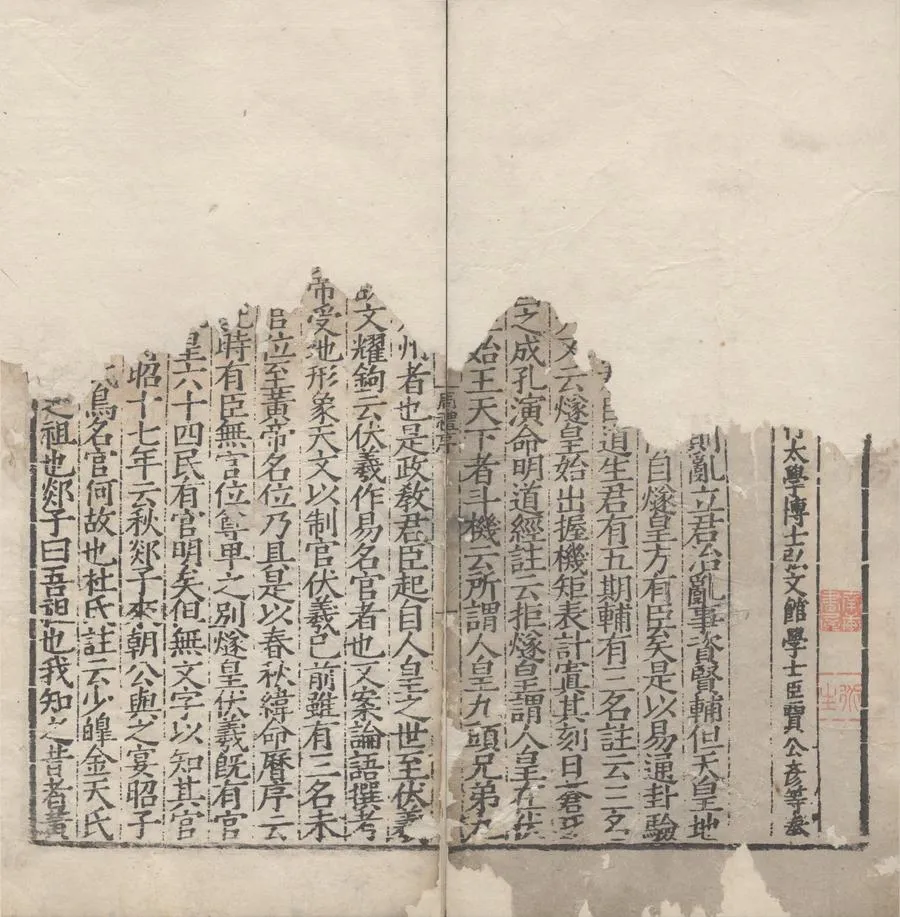 太學博士弘文館學士臣賈公彥等奉
則亂立君治亂事資賢輔但天皇地
自燧皇方有臣矣是以易通卦驗
道生君有五期輔有三名註云三名
又云燧皇始出握機矩表計寘其刻曰蒼
之成孔演命明道經註云拒燧皇謂人皇在伏
始王天下者斗機云所謂人皇九頭兄弟九
周禮序
州者也是政教君臣起自人皇之世至伏羲
文耀鉤云伏羲作易名官者也又案論語撰考
帝受地形象天文以制官伏羲已前雖有三名未
官位至黃帝名位乃具是以春秋緯命曆序云
時有臣無官位尊卑之別燧皇伏羲旣有官
皇六十四民有官明矣但無文字以知其官
昭十七年云秋郯子來朝公與之宴昭子
鳥名官何故也杜氏註云少皥金天氏
之祖也郯子曰吾祖也我知之昔者黃